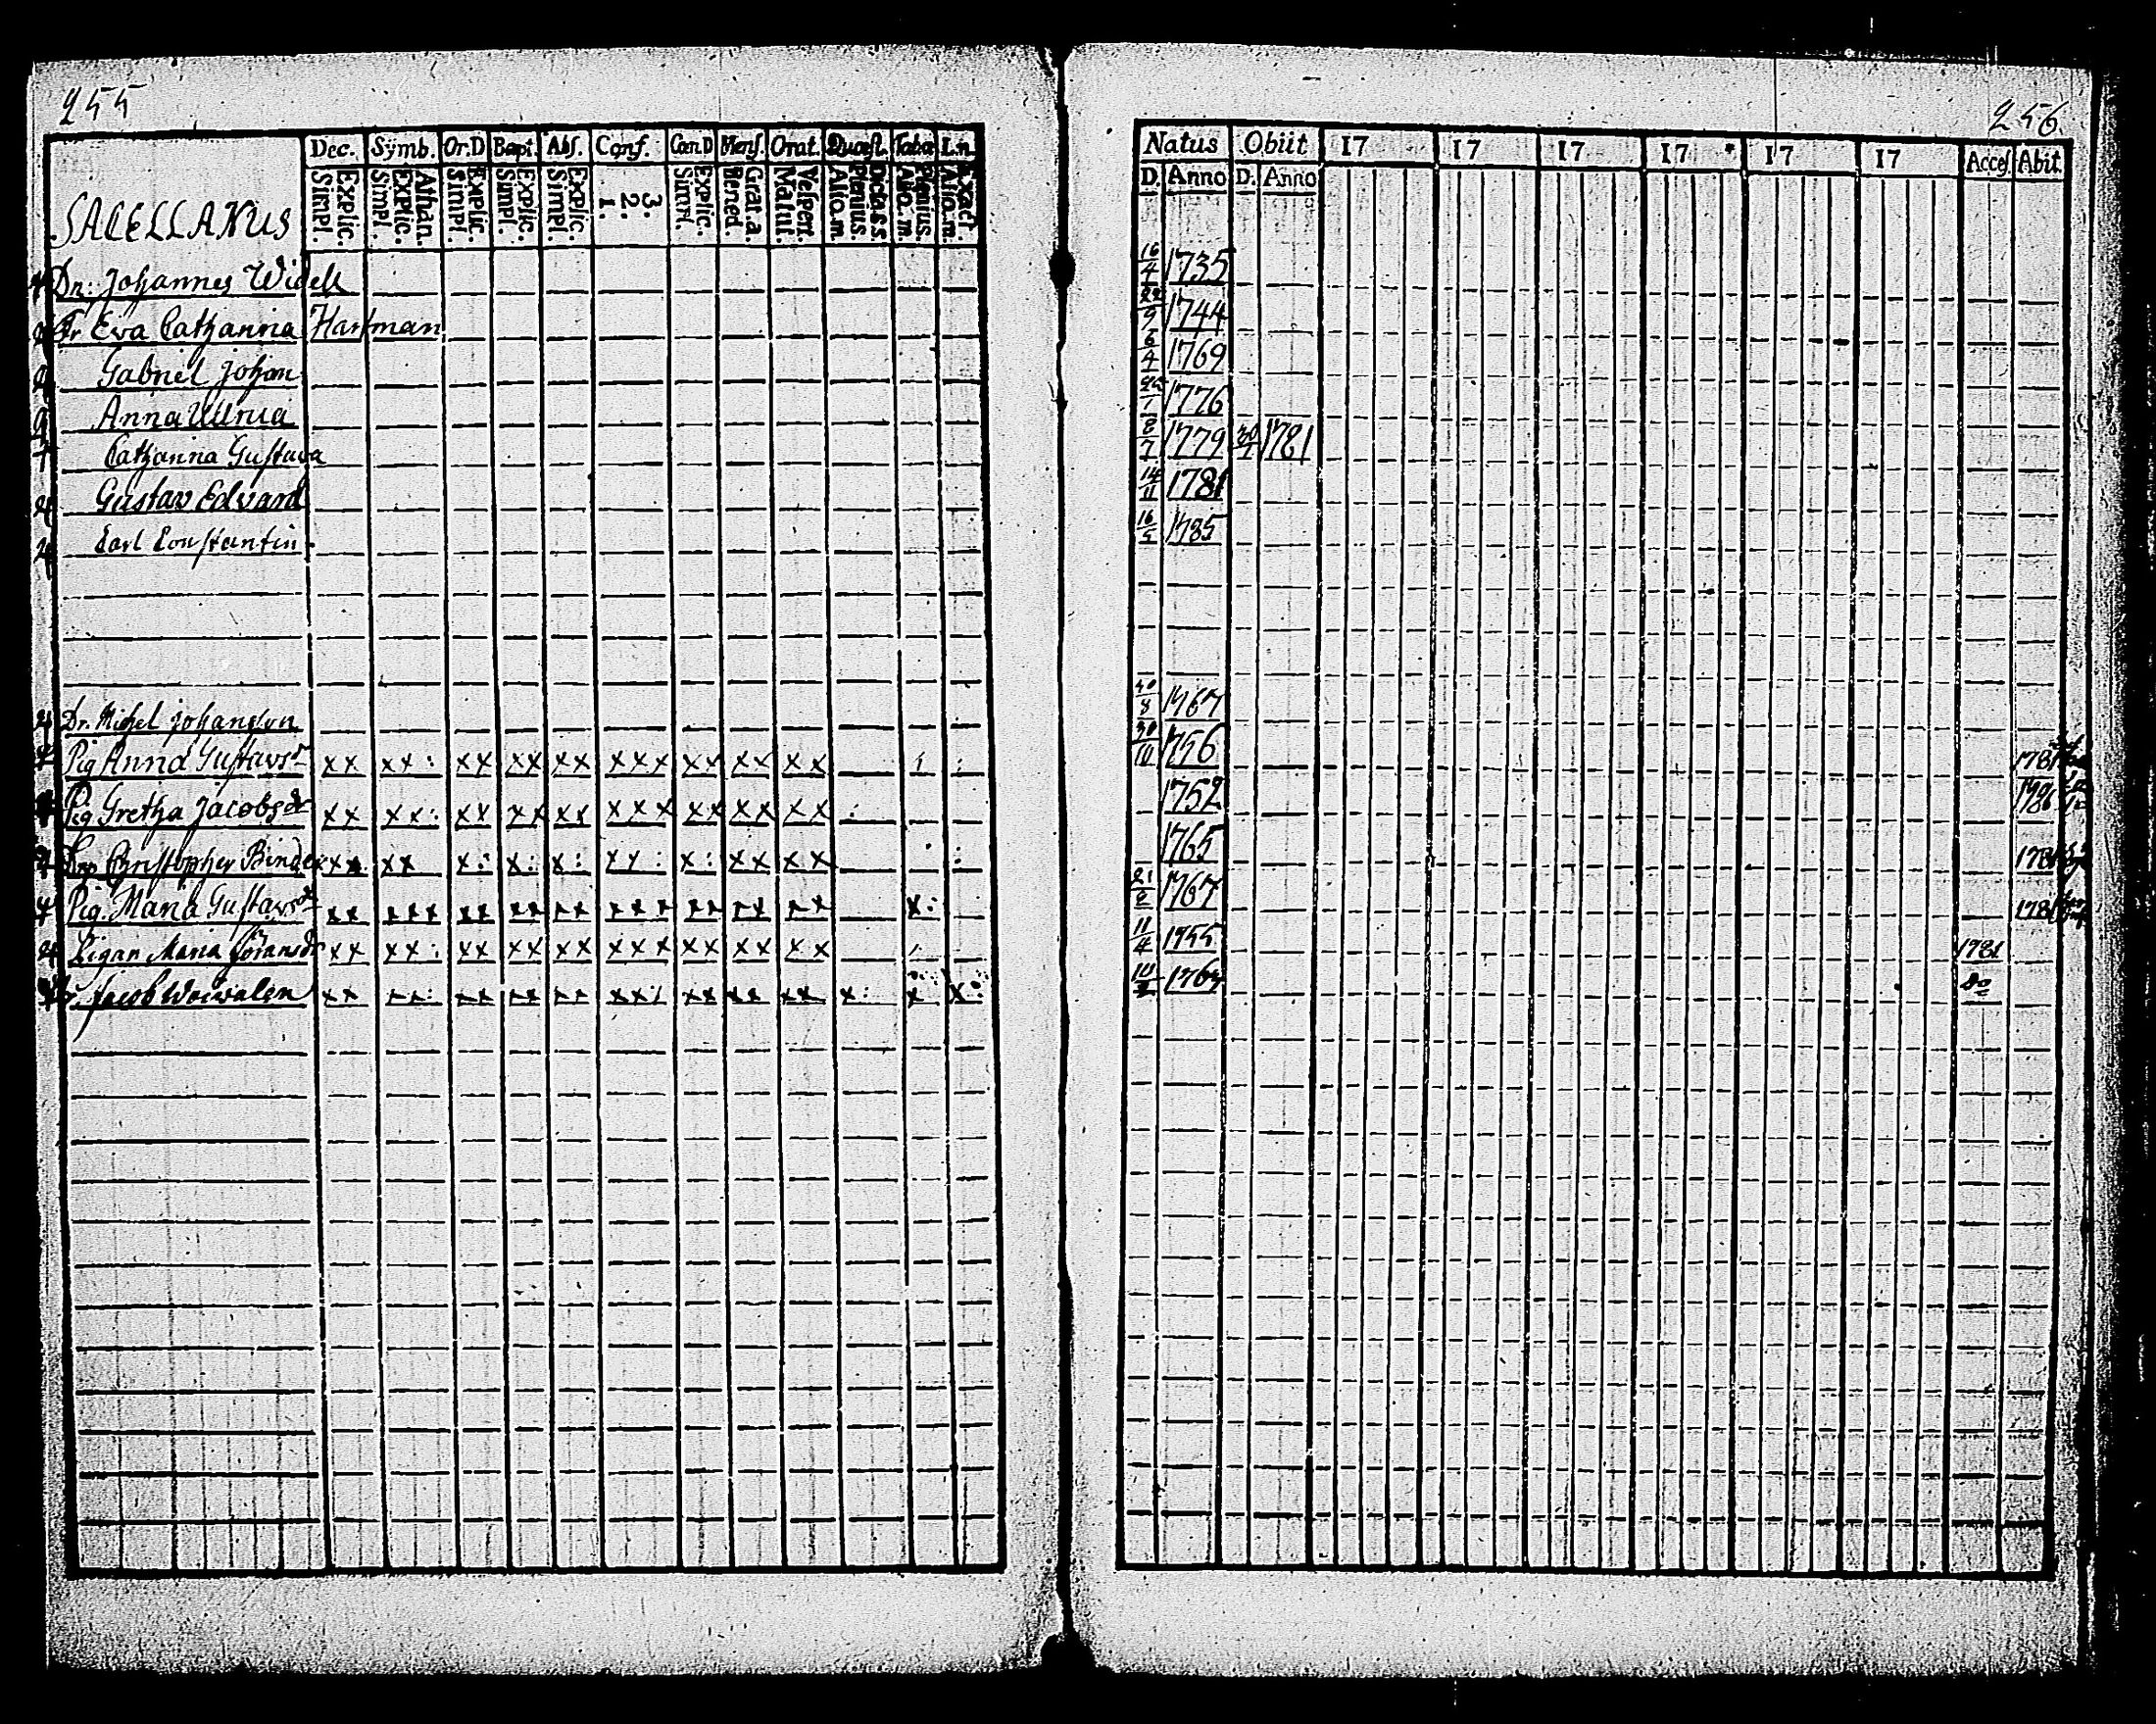 255
Dec. Symb. Or.D Bapt. Abs. Conf. Can.D Mens. Orat. Quæst. Taba L.n.
Simpl. Explic. Simpl. Explic. Athan. Simpl. Explic. Simpl. Explic. Simpl. Explic. 1. 2. 3. Simpl. Explic. Bened. Grat.a. Matut. Vespert. Aliq.m. Plenius. Dicta ss. Aliq.m. Plenius. Aliq.m. Exact.
SACELLANUS
Dn: Johannes Widell
Fr Eva Catharina Hartman
Gabriel Johan
Anna Ulrica
Catharina Gustava
Gustav Edvard
Carl Constantin
Dr. Michel Johansson
Pig Anna Gustavsdr xx xx: xx xx xx xxx xx xx xx
Pig Gretha Jacobsdr xx xx: xx xx xx xxx xx xx xx
Christopher Binder xx xx x: x: x: xx: x: xx xx
Pig. Maria Gustavsdr xx xxx xx xx xx xxx xx xx xx x:
Pigan Maria Göransdr xx xx: xx xx xx xxx xx xx xx
Jacob xx xx: xx xx xx xx: xx xx xx x: x x:
256
Natus Obiit 17 17 17 17 17 17 Acces. Abit.
D. Anno D. Anno
16/4 1735
22/9 1744
6/4 1769
1776
8/7 1779 1781
14/11 1781
16/5 1785
1767
30/10 1756 1781
1752 1786
1765 1781
21/2 1767 1781
11/4 1755 1781
1767 do